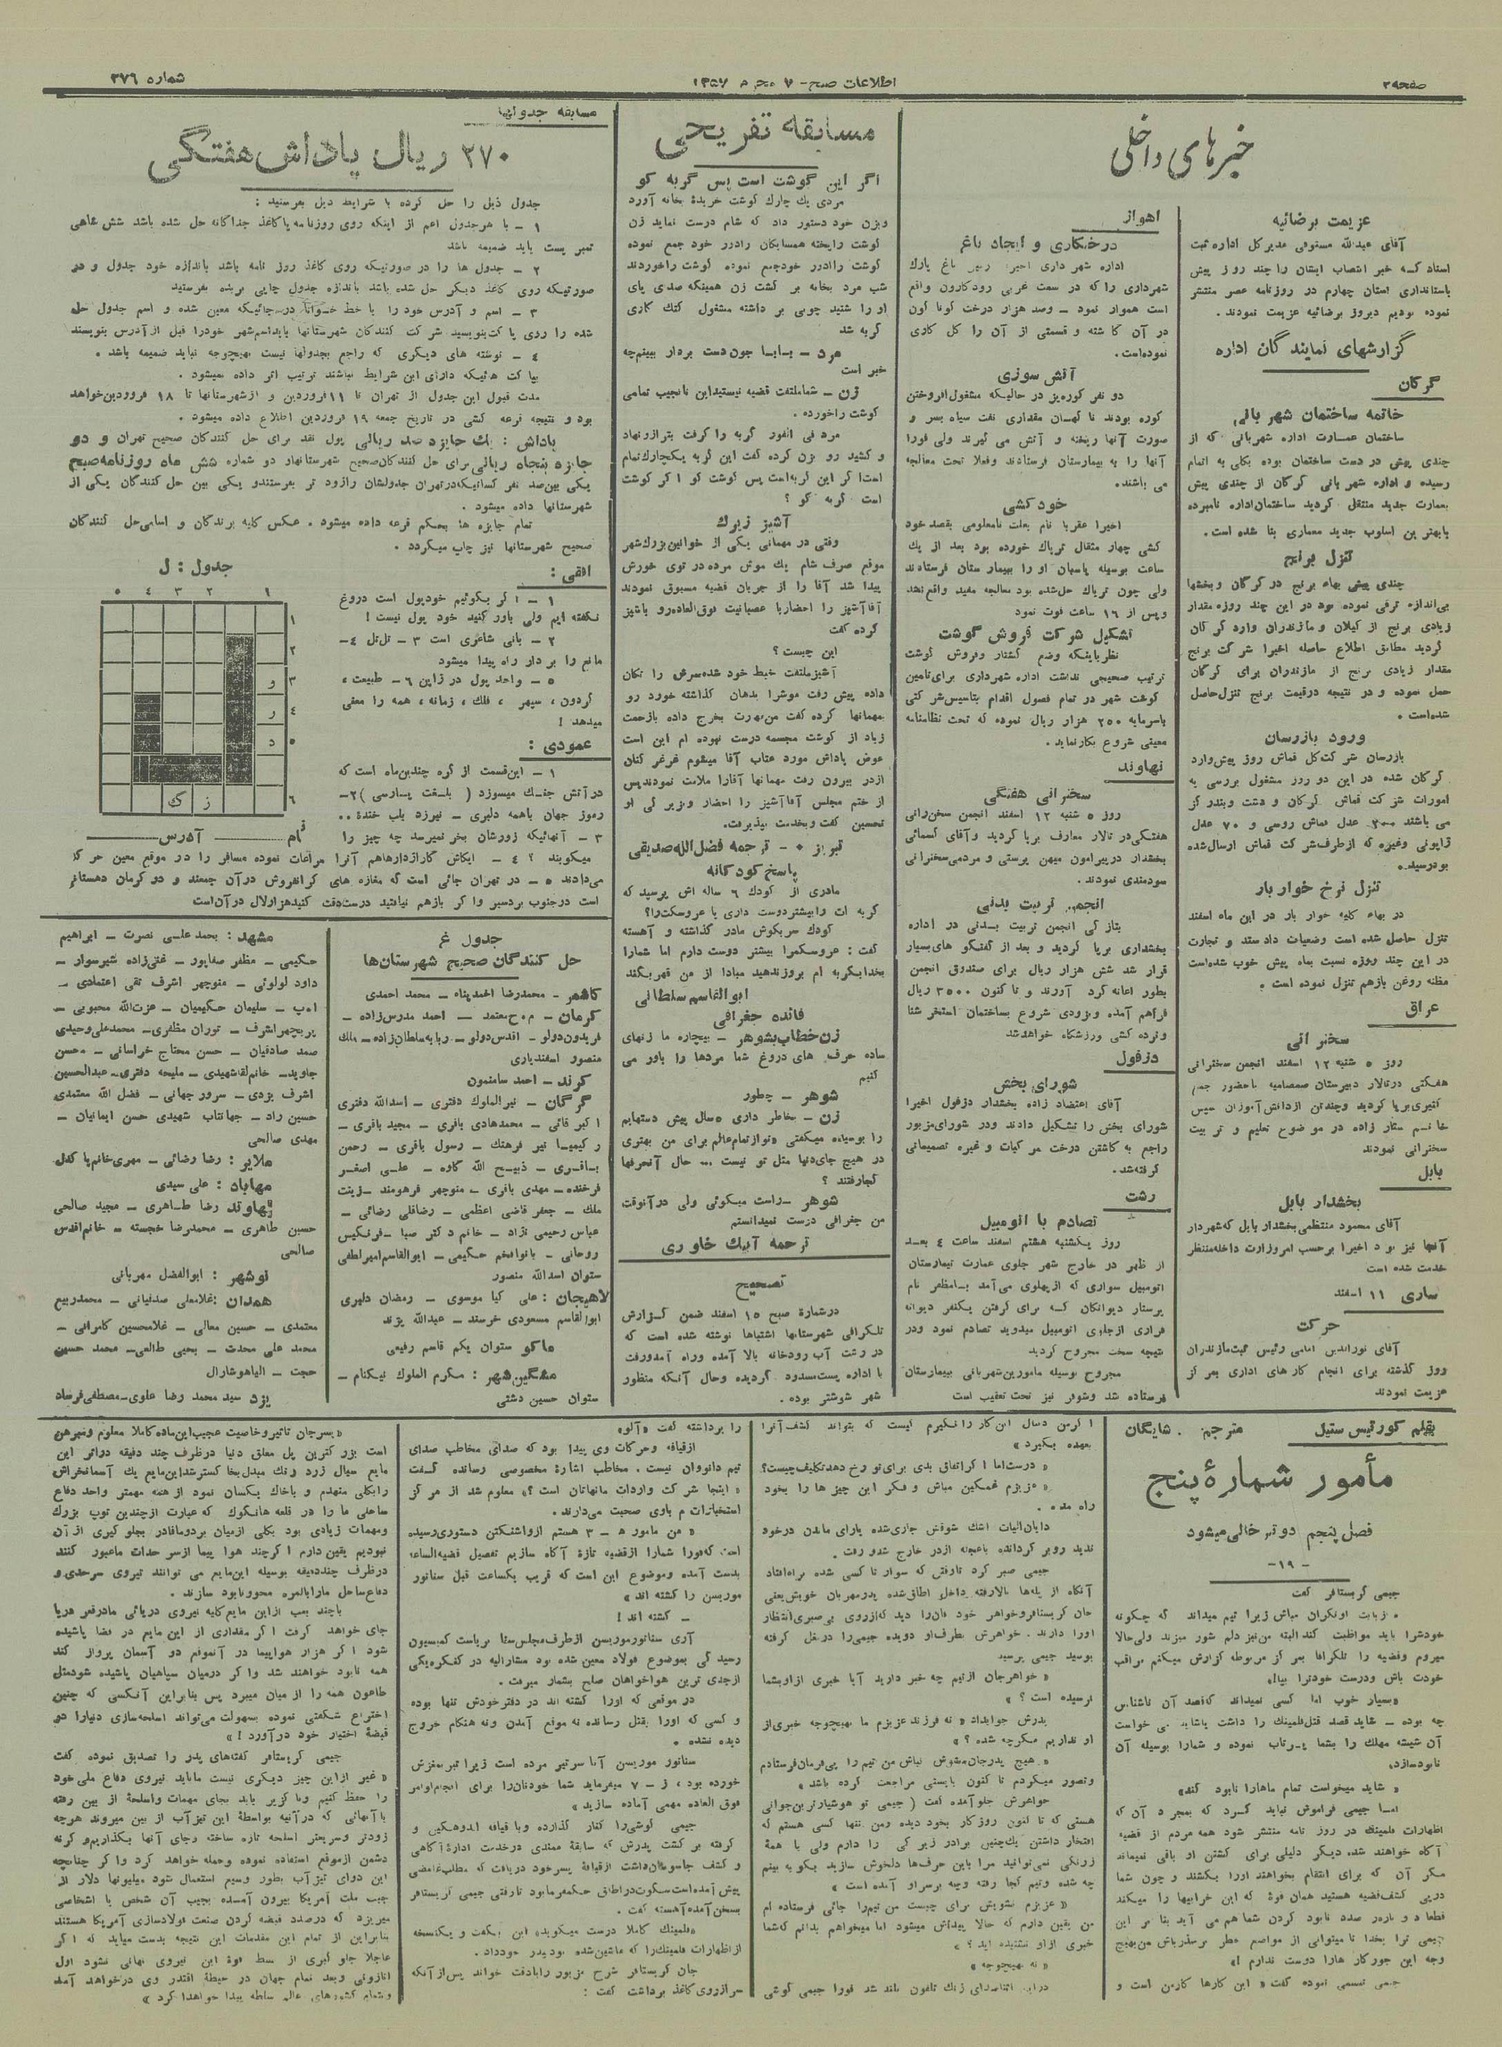 صفحه ۲
اطلاعات صبح - ۷ محرم ۱۳۵۷
شماره ۳۷۶
خبرهای داخلی
عزیمت برضائیه
آقای عبدالله مستوفی مدیر کل اداره ثبت
اسناد که خبر انتصاب ایشان را چند روز پیش
باستانداری استان چهارم در روزنامه عصر منتشر
نموده بودیم دیروز برضائیه عزیمت نمودند.
گزارشهای نمایندگان اداره
گرگان
خاتمه ساختمان شهربانی
ساختمان عمارت اداره شهربانی که از
چندی پیش در دست ساختمان بوده بکلی به اتمام
رسیده و اداره شهربانی گرگان از چندی پیش
بعمارت جدید منتقل گردید ساختمان اداره نامبرده
بابهترین اسلوب جدید معماری بنا شده است.
تنزل برنج
چندی پیش بهاء برنج در گرگان و بخشها
بی‌اندازه ترقی نموده بود در این چند روزه مقدار
زیادی برنج از گیلان و مازندران وارد گرگان
گردید مطابق اطلاع حاصله اخیرا شرکت برنج
مقدار زیادی برنج از مازندران برای گرگان
حمل نموده و در نتیجه درقیمت برنج تنزل حاصل
شده‌است.
ورود بازرسان
بازرسان شرکت کل قماش روز پیش وارد
گرگان شده در این دو روز مشغول بررسی به
امورات شرکت قماش گرگان و دشت وبندر گز
می باشند ۳۰۰ عدل قماش روسی و ۷۰ عدل
ژاپونی وغیره که ازطرف شرکت قماش ارسال شده
بود رسید.
تنزل نرخ خواربار
در بهاء کلیه خواربار در این ماه اسفند
تنزل حاصل شده است وضعیات داد ستد و تجارت
در این چند روزه نسبت بماه پیش خوب شده‌است
مظنه روغن بازهم تنزل نموده است.
عراق
سخنرانی
روز ۵ شنبه ۱۲ اسفند انجمن سخنرانی
هفتگی درتالار دبیرستان صمصامیه باحضور جمع
کثیری برپا گردید وچندتن ازدانش‌آموزان سپس
خانم ستارزاده در موضوع تعلیم و تربیت
سخنرانی نمودند
بابل
بخشدار بابل
آقای محمود منتظمی بخشدار بابل که شهردار
آنجا نیز بود اخیرا برحسب امر وزارت داخله منتظر
خدمت شده است
ساری ۱۱ اسفند
حرکت
آقای نورالدین امامی رئیس ثبت مازندران
روز گذشته برای انجام کارهای اداری بعزم
عزیمت نمودند
اهواز
درختکاری و ایجاد باغ
شهرداری را که در سمت غربی رودکارون واقع
است هموار نمود - وصد هزار درخت گوناگون
در آن کاشته و قسمتی از آن را گل کاری
نموده‌است.
آتش سوزی
دو نفر کوره‌پز در حالیکه مشغول افروختن
کوره بودند ناگهان مقداری نفت سیاه بسر و
صورت آنها ریخته و آتش می گیرند ولی فورا
آنها را به بیمارستان فرستادند وفعلا تحت معالجه
می باشند.
خودکشی
اخیرا عقربا نام بعلت نامعلومی بقصد خود
کشی چهار مثقال تریاک خورده بود بعد از یک
ساعت بوسیله پاسبان او را ببیمارستان فرستادند
ولی چون تریاک حل‌شده بود معالجه مفید واقع نشد
وپس از ۱۶ ساعت فوت نمود
تشکیل شرکت فروش گوشت
نظر باینکه وضع کشتار وفروش گوشت
ترتیب صحیحی نداشت اداره شهرداری برای تامین
گوشت شهر در تمام فصول اقدام بتاسیس شرکتی
باسرمایه ۲۵۰ هزار ریال نموده که تحت نظامنامه
معینی شروع بکار نماید.
نهاوند
سخنرانی هفتگی
روز ۵ شنبه ۱۲ اسفند انجمن سخنرانی
هفتگی در تالار معارف برپا گردید و آقای کسمائی
بخشدار درپیرامون میهن پرستی و مردمی سخنرانی
سودمندی نمودند.
انجمن تربیت بدنی
بتازگی انجمن تربیت بدنی در اداره
بخشداری برپا گردید و بعد از گفتگو های بسیار
قرار شد شش هزار ریال برای صندوق انجمن
بطور اعانه گرد آورند و تا کنون ۳۵۰۰ ریال
فراهم آمده وبزودی شروع بساختمان استخر شنا
ونرده کشی ورزشگاه خواهدشد
دزفول
شورای بخش
آقای اعتضاد زاده بخشدار دزفول اخیرا
شورای بخش را تشکیل دادند ودر شورای مزبور
راجع به کاشتن درخت مرکبات و غیره تصمیماتی
گرفته‌شد.
رشت
تصادم با اتومبیل
روز یکشنبه هشتم اسفند ساعت ٤ بعد
از ظهر در خارج شهر جلوی عمارت تیمارستان
اتومبیل سواری که ازپهلوی می‌آمد بامظفر نام
پرستار دیوانگان که برای گرفتن یکنفر دیوانه
فراری ازجلوی اتومبیل میدوید تصادم نمود ودر
نتیجه سخت مجروح گردید
مجروح بوسیله مامورین شهربانی ببیمارستان
فرستاده شد وشوفر نیز تحت تعقیب است
مسابقه تفریحی
اگر این گوشت است پس گربه کو
مردی یک چارک گوشت خریده بخانه آورد
وبزن خود دستور داد که شام درست نماید زن
گوشت را پخته همسایگان را دور خود جمع نموده
شب مرد بخانه بر گشت زن همینکه صدی پای
او را شنید چوبی بر داشته مشغول کتک کاری
گربه شد
مرد - بابا جون دست بردار ببینم چه
خبر است
زن - شما ملتفت قضیه نیستید این نانجیب تمامی
گوشت را خورده.
مرد فی الفور گربه را گرفت بترازو نهاد
و کشید رو بزن کرده گفت این گربه یکچارک تمام
است اگر این گربه‌است پس گوشت کو اگر گوشت
است گربه کو؟
آشپز زیرک
وقتی در مهمانی یکی از خوانین بزرگ شهر
موقع صرف شام یک موش مرده در توی خورش
پیدا شد آقا را از جریان قضیه مسبوق نمودند
آقا آشپز را احضار با عصبانیت فوق‌العاده رو باشپز
کرده گفت
این چیست؟
آشپز ملتفت خبط خود شده سرش را تکان
داده پیش رفت موش را بدهان گذاشته خورد رو
بمهمانها کرده گفت من مهارت بخرج داده بازحمت
زیاد از گوشت مجسمه درست نموده ام این است
عوض پاداش مورد عتاب آقا میشوم غرغر کنان
ازدر بیرون رفت مهمانها آقارا ملامت نمودند پس
از ختم مجلس آقا آشپز را احضار وزیرکی او
تحسین گفت وبخدمت بپذیرفت.
تبریز - ترجمه فضل‌الله صدیقی
پاسخ کودکانه
مادری از کودک ٦ ساله اش پرسید که
گربه ات را بیشتر دوست داری یا عروسکت را؟
کودک سربگوش مادر گذاشته و آهسته
گفت: عروسکم را بیشتر دوست دارم اما شمارا
بخدا بگربه ام بروز ندهید مبادا از من قهر بکند
ابوالقاسم سلطانی
فائده جغرافی
زن خطاب بشوهر - بیچاره ما زنهای
ساده حرف های دروغ شما مردها را باور می
کنیم
شوهر - چطور
زن - بخاطر داری ۵ سال پیش دستهایم
را بوسیده میگفتی «تو از تمام عالم برای من بهتری
در هیچ جای دنیا مثل تو نیست ... حال آنحرفها
کجا رفتند؟
شوهر - راست میگوئی ولی در آنوقت
من جغرافی درست نمیدانستم
ترجمه آنیک خاوری
تصحیح
درشمارهٔ صبح ۱۵ اسفند ضمن گزارش
تلگرافی شهرستانها اشتباها نوشته شده است که
در رشت آب رودخانه بالا آمده وراه آمدورفت
با اداره پست مسدود گردیده وحال آنکه منظور
شهر شوشتر بوده.
مسابقه جدولها
۲۷۰ ریال پاداش هفتگی
جدول ذیل را حل کرده با شرایط ذیل بفرستید:
۱ - با هرجدول اعم از اینکه روی روزنامه یا کاغذ جداگانه حل شده باشد شش شاهی
تمبر پست باید ضمیمه باشد
۲ - جدول ها را در صورتیکه روی کاغذ روزنامه باشد باندازه خود جدول و در
صورتیکه روی کاغذ دیگر حل شده باشد باندازه جدول چاپی بریده بفرستید
۳ - اسم و آدرس خود را با خط خوانا در جائیکه معین شده و اسم جدول حل
شده را روی پاکت بنویسید شرکت کنندگان شهرستانها باید اسم شهر خودرا قبل از آدرس بنویسند
٤ - نوشته های دیگری که راجع بجدولها نیست بهیچوجه نباید ضمیمه باشد.
بپاکت هائیکه دارای این شرایط نباشند ترتیب اثر داده نمیشود.
مدت قبول این جدول از تهران تا ۱۱ فروردین و از شهرستانها تا ۱۸ فروردین خواهد
بود و نتیجه قرعه کشی در تاریخ جمعه ۱۹ فروردین اطلاع داده میشود.
پاداش: یک جایزه صد ریالی پول نقد برای حل کنندگان صحیح تهران و دو
جایزه پنجاه ریالی برای حل کنندگان صحیح شهرستانها و دو شماره شش ماه روزنامه صبح
یکی بین صد نفر کسانیکه در تهران جدولشان را زودتر بفرستند و یکی بین حل کنندگان یکی از
شهرستانها داده میشود.
تمام جایزه ها بحکم قرعه داده میشود. عکس کلیه برندگان و اسامی حل کنندگان
صحیح شهرستانها نیز چاپ میگردد.
جدول: ل
۱ ۲ ۳ ٤ ٥
۱
۲
۳ و
٤ ر
٥ د
٦ ز ک
نام ــــ آدرس ــــ
افقی:
۱ - اگر بگوئیم خود پول است دروغ
نگفته ایم ولی باور کنید خود پول نیست!
۲ - بانی شاعری است ۳ - تل‌تل ٤ -
مانم را بر دار راه پیدا میشود
٥ - واحد پول در ژاپن ٦ - طبیعت،
گردون، سپهر، فلک، زمانه، همه را معنی
میدهد!
عمودی:
۱ - این قسمت از کره چندین ماه است که
در آتش جنگ میسوزد (بلغت پارسی) ۲ -
رموز جهان باهمه دلبری - نیرزد باب خنده..
۳ - آنهائیکه زورشان بخر نمیرسد چه چیز را
میکوبند؟ ٤ - ایکاش گاراژدارها هم آنرا مراعات نموده مسافر را در موقع معین حرکت
میدادند ٥ - در تهران جائی است که مغازه های گرانفروش در آن جمعند و در کرمان دهستانی
است در جنوب بردسیر و اگر بازهم نیافتید درست دقت کنید هزار لال در آن است
جدول غ
حل کنندگان صحیح شهرستان‌ها
کاشمر - محمدرضا احمدپناه - محمد احمدی
کرمان - م.ح معتمد - احمد مدرس‌زاده -
فریدون دولو - اقدس دولو - ربابه سلطان‌زاده - ملک
منصور اسفندیاری
کرند - احمد سامنمون
گرگان - نیرالملوک دفتری - اسدالله دفتری
اکبر قائی - محمدهادی باقری - مجید باقری -
رکیمیا نیر فرهنگ - رسول باقری - رحمن
باقری - ذبیح الله کاوه - علی اصغر
فرخنده - مهدی باقری - منوچهر فرهومند - زینت
ملک - جعفر قاضی اعظمی - رضاقلی رضائی -
عباس رحیمی نژاد - خانم دکتر صبا - فرنگیس
روحانی - بانو افخم حکیمی - ابوالقاسم امیرلطفی
ستوان اسدالله منصور
لاهیجان: علی کیا موسوی - رمضان دلیری
ابوالقاسم مسعودی خرسند - عبدالله یزند
ماکو ستوان یکم قاسم رفیعی
مشگین‌شهر: مکرم الملوک نیکنام -
ستوان حسین دشتی
مشهد: محمدعلی نصرت - ابراهیم
حکیمی - مظفر صفاپور - غنی‌زاده شیرسوار -
داود لولوئی - منوچهر اشرف تقی اعتمادی -
ا.پ - سلیمان حکیمیان - عزت‌الله محبوبی -
پریچهر اشرف - توران مظفری - محمدعلی وحیدی
صمد صادقیان - حسن محتاج خراسانی - محسن
جاوید - خانم لقا شهیدی - ملیحه دفتری - عبدالحسین
اشرف یزدی - سرور جهانی - فضل الله معتمدی
حسین راد - جهانتاب شهیدی حسن ایمانیان -
مهدی صالحی
ملایر: رضا رضائی - مهری خانم پاکدل
مهاباد: علی سیدی
نهاوند رضا طاهری - مجید صالحی
حسین طاهری - محمدرضا خجسته - خانم اقدس
صالحی
نوشهر: ابوالفضل مهربانی
همدان: غلامعلی صدفیانی - محمدربیع
معتمدی - حسین معالی - غلامحسین کامرانی -
محمد علی محدث - یحیی طالعی - محمد حسین
حجت - الیاهو شارال
یزد سید محمد رضا علوی - مصطفی فرساد
بقلم کورتیس ستیل
مترجم. شایگان
مأمور شمارهٔ پنج
فصل پنجم دو تیر خالی میشود
-۱۹-
جیمی کریستافر گفت
«زبابت او نگران مباش زیرا تیم میداند که چگونه
خودشرا باید مواظبت کند البته من نیز دلم شور میزند ولی حالا
میروم وقضیه را تلگرافا بمرکز مربوطه گزارش میکنم مراقب
خودت باش ودرست خودترا بپا»
«بسیار خوب اما کسی نمیداند که قصد آن ناشناس
چه بوده - شاید قصد قتل فلمینک را داشت یا شاید می خواست
آن شیشه مهلک را بشما پرتاب نموده و شمارا بوسیله آن
نابود سازد»
«شاید میخواست تمام ماهارا نابود کند»
اما جیمی فراموش نباید کرد که بمجرد آن که
اظهارات فلمینک در روزنامه منتشر شود همه مردم از قضیه
آگاه خواهند شد دیگر دلیلی برای کشتن او باقی نمیماند
مگر آن که برای انتقام بخواهند اورا بکشند و چون شما
درپی کشف قضیه هستید همان قوهٔ که این خرابیها را میکند
جیمی تبسمی نموده گفت «این کارها کار من است و
اگر من دنبال این کار را نگیرم کیست که بتواند کشف آنرا
بعهده بگیرد»
«درست اما اگر اتفاق بدی برای تو رخ دهد تکلیف چیست؟
«عزیزم غمگین مباش و فکر این چیز ها را بخود
راه مده.
دایان الیات اشک شوقش جاری شده یارای ماندن در خود
ندید رو بر گردانده باعجله از در خارج شد و رفت.
جیمی صبر کرد تا رفتش که سوار تاکسی شده براه افتاد
آنگاه از پله‌ها بالا رفته داخل اطاق شده پدر مهربان خویش یعنی
جان کریستافر وخواهر خود دیان را دید که از روی بی‌صبری انتظار
اورا دارند. خواهرش بطرف او دویده جیمی را در بغل گرفته
بوسید جیمی پرسید
«خواهرجان ازتیم چه خبر دارید آیا خبری از او بشما
نرسیده است؟»
پدرش جوابداد «نه فرزند عزیزم ما بهیچوجه خبری از
او نداریم مگر چه شده؟»
«هیچ پدرجان مشوش نباش من تیم را پی فرمان فرستادم
وتصور میکردم تا کنون بایستی مراجعت کرده باشد»
خواهرش جلو آمده گفت (جیمی تو هوشیارترین جوانی
هستی که تا کنون روزگار بخود دیده ومن تنها کسی هستم که
افتخار داشتن یکچنین برادر زیرکی را دارم ولی با همهٔ
زرنگی نمی‌توانید مرا باین حرفها دلخوش سازید بگو به بینم
چه شده وتیم کجا رفته وچه برسر او آمده است»
«عزیزم تشویش برای چیست من تیم را جائی فرستاده ام
من یقین دارم که حالا پیدایش میشود اما میخواهم بدانم که شما
خبری از او نشنیده اید؟»
«نه بهیچوجه»
دراین اثنا صدای زنگ تلفون بلند شد فورا جیمی گوشی
را برداشته گفت «آلو»
ازقیافه وحرکات وی پیدا بود که صدای مخاطب صدای
تیم دانووان نیست. مخاطب اشارهٔ مخصوصی رسانده گفت
«اینجا شرکت واردات مانهاتان است؟» معلوم شد از مرکز
استخبارات با وی صحبت می‌دارند.
«من مامور ه - ۳ هستم از واشنگتن دستوری رسیده
است که فورا شمارا از قضیه تازه آگاه سازیم تفصیل قضیه الساعه
بدست آمده وموضوع این است که قریب یکساعت قبل سناتور
موریسن را کشته اند»
- کشته اند!
آری سناتور موریسن از طرف مجلس سنا بریاست کمیسیون
رسیدگی بموضوع فولاد معین شده بود مشارالیه در کنگره یکی
ازجدی ترین هواخواهان صلح بشمار میرفت.
در موقعی که اورا کشته اند در دفتر خودش تنها بوده
و کسی که اورا بقتل رسانده نه موقع آمدن ونه هنگام خروج
دیده نشده.
سناتور موریسن آنا سر تیر مرده است زیرا تیر بمغزش
خورده بود، ز - ۷ میفرماید شما خودتان را برای انجام اوامر
فوق العاده مهمی آماده سازید»
جیمی گوشی را کنار گذارده وبا قیافه اندوهگین و
گرفته بر گشت پدرش که سابقهٔ ممتدی در خدمت ادارهٔ آگاهی
و کشف جاسوسان داشت از قیافهٔ پسر خود دریافت که مطلب غامضی
پیش آمده است سکوت در اطاق حکمفرما بود تا رفتی جیمی کریستافر
بسخن آمده آهسته گفت.
«فلمینک کاملا درست میگوید» این بگفت و یکنسخه
ازاظهارات فلمینک را که ماشین شده بود بپدر خود داد.
جان کریستافر شرح مزبور را بادقت خواند پس از آنکه
سر از روی کاغذ برداشت گفت:
«پسرجان تاثیر وخاصیت عجیب این ماده کاملا معلوم ومبرهن
است بزرگترین پل معلق دنیا درظرف چند دقیقه در اثر این
مایع سیال زرد رنگ مبدل بخاکستر شد این مایع یک آسمانخراش
را بکلی منهدم و باخاک یکسان نمود از همه مهمتر واحد دفاع
ساحلی ما را در قلعه هانکوک که عبارت ازچندین توپ بزرگ
ومهمات زیادی بود بکلی ازمیان برد وماقادر بجلوگیری از آن
نبودیم یقین دارم اگر چند هوا پیما از سرحدات ما عبور کنند
درظرف چند دقیقه بوسیله این مایع می توانند نیروی سرحدی و
دفاع ساحل مارا بالمره محو ونابود سازند.
باچند بمب ازاین مایع کلیه نیروی دریائی ما در قعر دریا
جای خواهد گرفت اگر مقداری از این مایع در فضا پاشیده
شود اگر هزار هواپیما در آنموقع در آسمان پرواز کند
همه نابود خواهند شد واگر درمیان سپاهیان پاشیده شود مثل
طاعون همه را از میان میبرد پس بنابراین آنکسی که چنین
اختراع شگفتی نموده بسهولت می‌تواند اسلحه‌سازی دنیارا در
قبضهٔ اختیار خود در آورد!»
جیمی کریستافر گفته‌های پدر را تصدیق نموده گفت
«غیر ازاین چیز دیگری نیست ما باید نیروی دفاع ملی خود
را حفظ کنیم وناگزیر باید بجای مهمات واسلحهٔ از بین رفته
یا آنهائی که درآتیه بواسطهٔ این تیزآب از بین میروند هرچه
زودتر وسریعتر اسلحه تازه ساخته وجای آنها بگذاریم وگرنه
دشمن ازموقع استفاده نموده وحمله خواهد کرد واگر چنانچه
این دوای تیزآب بطور وسیع استعمال شود میلیونها دلار از
جیب ملت آمریکا بیرون آمده بجیب آن شخص یا اشخاصی
میریزد که درصدد قبضه کردن صنعت فولادسازی آمریکا هستند
بنابراین از تمام این مقدمات این نتیجه بدست میاید که اگر
عاجلا جلوگیری از بسط قوهٔ این نیروی نهانی نشود اول
اتازونی وبعد تمام جهان در حیطهٔ اقتدار وی درخواهد آمد
وبتمام کشورهای عالم سلطه پیدا خواهد کرد»